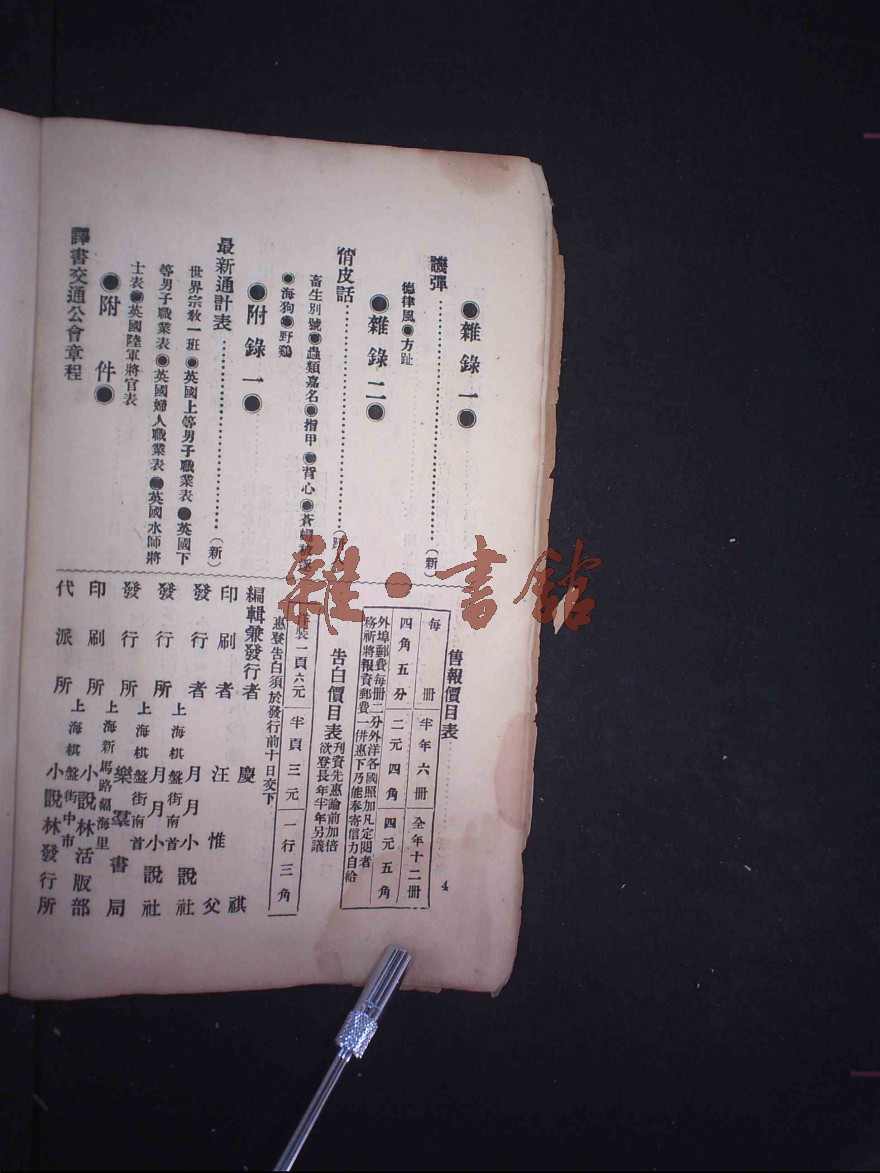 ●雜錄一●
譏彈……(新)
德律風●方趾
●雜錄二●
俏皮話……
畜生別號●蟲類嘉名●指甲●背心●蒼蠅
●海狗●野鷄
●附錄一●
最新通計表……(新)
世界宗教一班●英國上等男子職業表●英國下
等男子職業表●英國婦人職業表●英國水師將
士表●英國陸軍將官表
●附件●
譯書交通公會章程
售報價目表
每冊 半年六冊 全年十二冊
四角五分 二元四角 四元五角
外埠郵費每冊二分外洋各國照加凡定閱者
務祈將報資郵費一併惠下乃能奉寄信力自給
告白價目表 刋資先惠論前加倍
欲登長年半年另議
裝一頁六元 半頁三元 一行三角
惠登告白須於發行前十日交下
編輯兼發行者 慶祺
印刷者 汪惟父
發行者 月月小說社
發行所 上海棋盤街南首 月月小說社
發行所 上海棋盤街南首 樂羣書局
印刷所 上海新馬路福海里 小說林活版部
代派所 上海棋盤街中市 小說林發行所
4
雜·書館